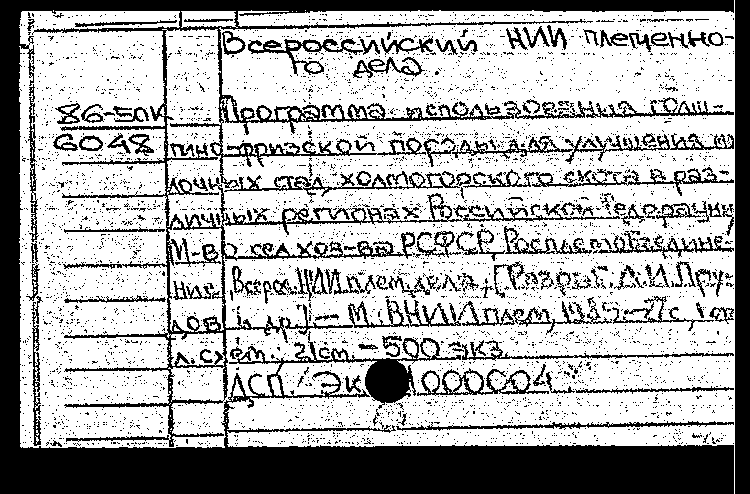 Всероссийский НИИ племенно-
го дела.
86-5ПК Программа использования голш-
6048 тино-фризской породы для улучшения мо
лочных стад холмогорского скота в раз-
личных регионах Российской Федерации
М-во сел.хоз-ва РСФСР, Росплемобъедине-
ние, Всерос. НИИ плем. дела; [Разраб. Л.И. Пру-
дов и др.] — М.: ВНИИплем, 1985.—27с, 1
л.схем.; 21см. — 500 экз.
ДСП. Эк 1000004